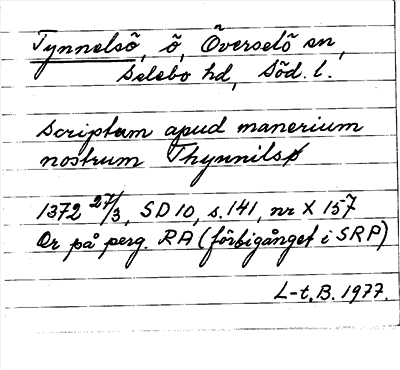 Tynnelsö, ö, Överselö sn,
Selebo hd, Söd. l.
scriptum apud manerium
nostrum Thynnilsø
1372 27/3, SD 10, s. 141, nr X 157
Or på perg. RA (förbigånget i SRP)
L-t. B. 1977.